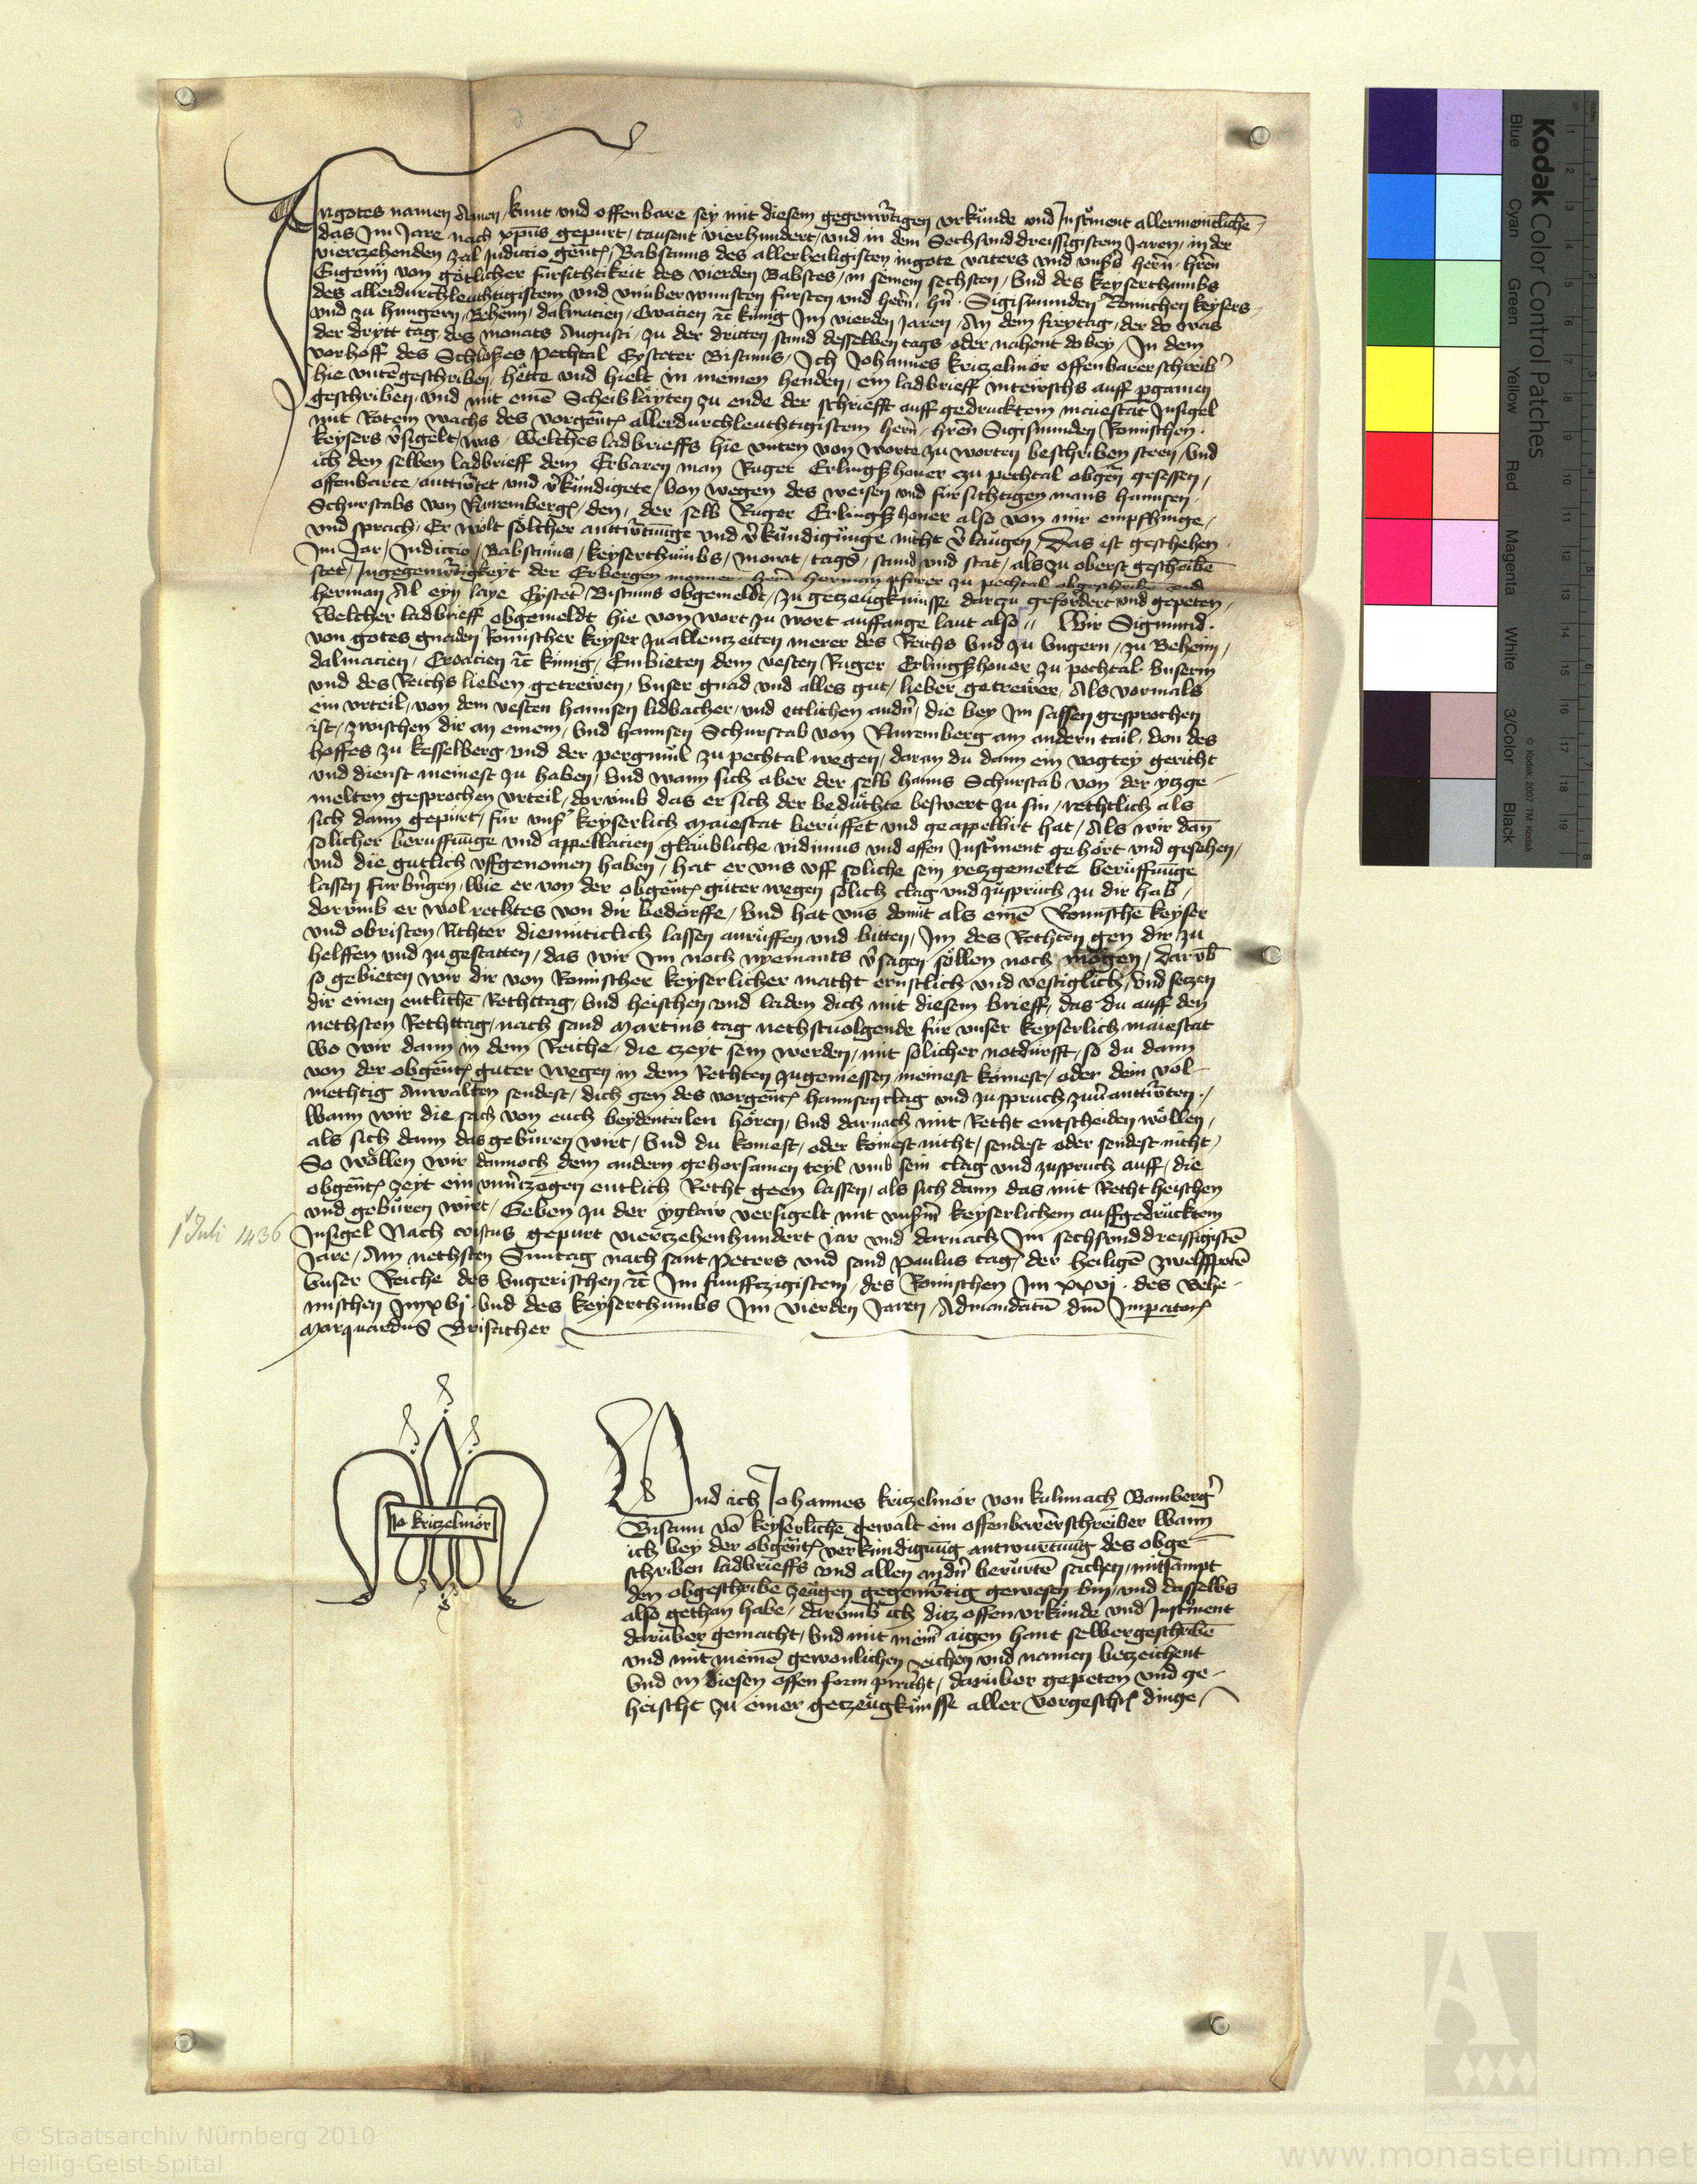 In gotes namen Amen / kunt vnd offenbare sey mit diesem gegenw̄tigen vrkünde vnd Instment allermeniclichē
das Im Jare nach xp̄us gepurt / tausent vierhundert / vnd in dem Sechsvnddreissigistem Jaren / in der
vierczehenden zal Judicio gēnt / Babstums des allerheiligisten ingote vaters vnd vnß̄s hern̄ · hren̄
Eugenij von götlicher fürsichtikeit des vierden Babstes / in seinem sechsten / Vnd des keyserthumbs
des allerdurchleuchtigistem vnd vnüberwunsten fursten vnd hern̄ / hn̄ · Sigismunden Romichen keysers
vnd zu hungern / Behem / dalmacien / Croacien ꝛc̄ kunig Im vierden Jaren / An dem freytag / der do was
der drytt tag des monats Augusti / zu der dritten stund desselben tags / oder nahent dobey / In dem
vorhoff des Schloßes pechtal Eysteter Bistums / Ich Johannes kriczelmor offenbarerschreib̄
hie vntēgeschriben / hette vnd hielt in meinen henden / ein ladbrieff inteẅschs auff p̱gamen
geschriben / vnd mit einē Scheiblayten zu ende der schriefft auff gedrucktem maiestat Insigel
mit Rotem wachs des vorgēnt allerdurchleuchtigistem hern̄ / hren̄ Sigismunden Romischen
keysers v̄sigelt / was / welches ladbrieffs hie vnten von worte zu worten beschriben steen / Vnd
ich den selben ladbrieff dem Erbaren man Ruger Erlingßhouer zu pechtal obgen̄ gesessen /
offenbarte / anttw̄tet vnd v̄kündigete / von wegen des weisen vnd fürsichtigen mans hannsen
Schurstabs von Nuremberg / den / der selb Ruger Erlingßhouer also von mir empfhinge /
vnd sprach / Er wölt sölcher anttw̄tūnge vnd v̄kündigunge nicht v̄laugen / Das ist geschehen
Im Jar / Indiccio / Babstums / keyserthumbs / monat / tags / stund vnd stat / als zu oberst geschribē
stet / Ingegenw̄tigkeyt der Erbergen menner hern̄ herman pfarer zu pechtal obgeschribē vnd
herman Al eyn laye Eystet̄ Bistums obgemeldt / zu getzeugknüsse darczu gefördert vnd gepeten /
welcher ladbrieff obgemeldt hie von wort zu wort anffange laut also // Wir Sigmund ·
von gotes gnaden Romischer keyser zuallenczeiten merer des Reichs Vnd zu Vngern / zu Behem /
dalmacien / Croacien ꝛc̄ kunig / Embieten dem vesten Ruger Erlingßhouer zu pechtal vnserm
vnd des Reichs lieben getrewen / vnser gnad vnd alles gut / lieber getrewer / Als vormals
ein vrteil / von dem vesten hannsen lidbacher / vnd ettlichen andn̄ / die bey Im sassen gesprochen
ist / zwischen dir an einem / Vnd hannsen Schurstab von Nuremberg am andern tail / von des
hoffes zu kesselberg vnd der pergmül zu pechtal wegen / daran du dann ein vogtey gericht
vnd dienst meinest zu haben / Vnd wann sich aber der selb hanns Schurstab von der yczge-
melten gesprochen vrteil / dorümb das er sich der bedüchte beswert zu sin / rechtlich als
sich dann gepürt / für vnß̄ keyserlich Maiestat berüffet vnd geappellirt hat / Als wir dan̄
solicher beruffūnge vnd appellacien glaubliche vidimus vnd offen Instment gehört vnd gesehen /
Vnd die gutlich vffgenomen haben / hat er vns vff soliche sein yeczgemelte berüffūnge
lassen furbrn̄gen / wie er von der obgēnt güter wegen solich clag vnd züspruch zu dir hab /
dorümb er wol rechtes von dir bedörffe / Vnd hat vns domit als einē Romischē keyser
vnd obristen Richter diemüticlich lassen anrüffen vnd bitten / Im des Rechten gen dir zu
helffen vnd zu gestatten / das wir Im noch nyemants v̄sagen söllen noch mögen / Darv̄b
so gebieten wir dir von Romischer keyserlicher macht ernstlich vnd vestiglich / Vnd seczen
dir einen entlichē Rechttag / Vnd heischen vnd laden dich mit diesem brieff / das du auff den
nechsten Rechttag / nach sand Martins tag nechstuolgende für vnser keyserlich maiestat
wo wir dann in dem Reiche / die czeyt sein werden / mit solicher notdürfft / so du dann
von der obgēnt guter wegen in dem Rechten zugeniessen meinest kömest / oder dein vol-
mechtig Anwalten sendest / dich gen des vorgēnt hannsen clag vnd zuspruch zuu̓anttw̄ten /
wann wir die sach von euch beydenteilen hören / Vnd darnach mit Recht entscheiden wöllen /
als sich dann das gebüren wirt / Vnd du komest / oder komest nicht / sendest oder sendest nicht /
So wöllen wir dannoch dem andern gehorsamen teyl vmb sein clag vnd zuspruch auff / die
obgēnt zeyt ein vnūczogen entlich Recht geen lassen / als sich dann das mit Recht heischen
vnd gebüren wirt / Geben zu der yglaw versigelt mit vnßm̄ keyserlichem auffgedrücktem
Insigel Nach cristus gepurt vierczehenhundert Jar vnd darnach Im sechsvnddreissigistē
1 Juli 1436
Jare / Am nechsten Suntag nach sant Peters vnd sand paulus tag / der heiligē zwelffpotē
Vnser Reiche des Vngerischen ꝛc̄ Im funffczigistem / des Romischen Im xxvj · des Behe-
mischen Imxvj · Vnd des keyserthumbs Im vierden Jaren / Admandatū dn̄i Impator
Marquardus Brisacher
Jo kriczelmor
Und ich Johannes kriczelmor von kulmach Bamberḡ
Bistum vō keyserlichē gewalt ein offenbarerschreiber wann
ich bey der obgēnt verkündigūng antwurtūng des obge-
schriben ladbrieffs vnd allen andn̄ berürtē sachen / mitsampt
den obgeschribē zeügen gegenw̄tig gewesen bin / vnd dasselbs
also gethan habe / darümb ich dicz offen vrkünde vnd Instment
darüber gemacht / Vnd mit meim̄ aigen hant selbergeschribē
vnd mit meinē gewonlichen zeichen vnd namen beczeichent
Vnd in diesen offen form pracht / darüber gepeten vnd ge-
heischt zu einer getzeügknüsse aller vorgeschr dinge /
Kodak Color Control Patches
Blue Cyan Green Yellow Red Magenta White 3/Color Black
© Kodak, 2007 TM: Kodak
© Staatsarchiv Nürnberg 2010
Heilig-Geist-Spital
www.monasterium.net